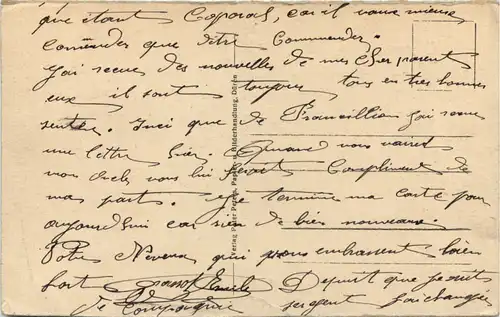 que étant Caporal, car il vaux mieux
comender que d'être Commander.
J'ai recue des nouvelles de mes Cher parent
eux il sont toujour tous en très bonnes
sentée. Inci que de Francillien j'ai recue
une lettre hier. Quand vous
vous lui ferait Compliment de
ma part. Je termine ma carte pour
aujourd'hui car rien de bien nouveaux.
Votre Neveux qui vous embrassent bien
fort Emile Depuit que je suit
de Compagnie sergent j'ai changée
Verlag Peter Papier- u. Bilderhandlung, Düren